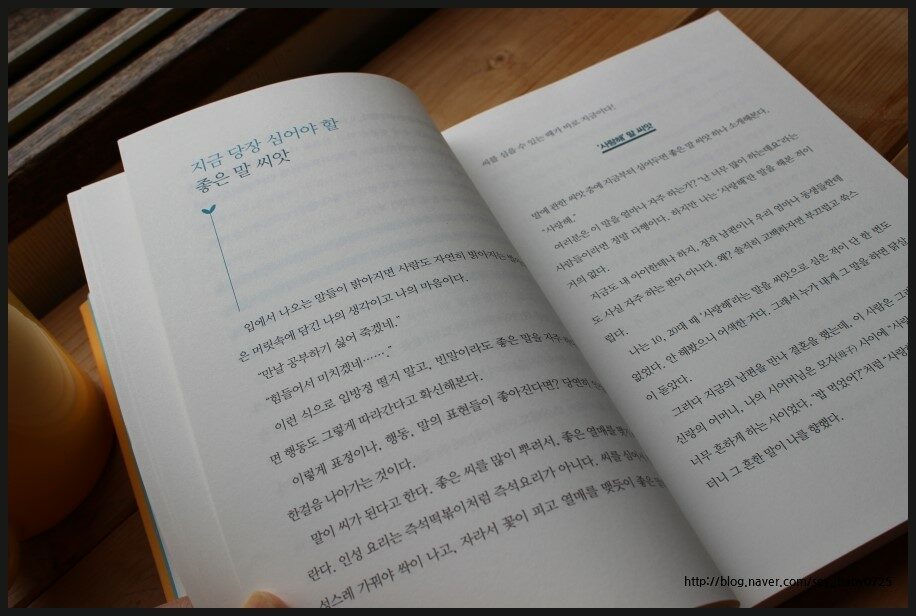 지금 당장 심어야 할
좋은 말 씨앗
입에서 나오는 말들이 밝아지면 사람도 자연히 밝아지는
은 머릿속에 담긴 나의 생각이고 나의 마음이다.
“만날 공부하기 싫어 죽겠네.”
“힘들어서 미치겠네…….”
이런 식으로 입방정 떨지 말고, 빈말이라도 좋은 말을 자주
면 행동도 그렇게 따라간다고 확신해본다.
이렇게 표정이나, 행동, 말의 표현들이 좋아진다면? 당연히
한걸음 나아가는 것이다.
말이 씨가 된다고 한다. 좋은 씨를 많이 뿌려서, 좋은 열매를
란다. 인성 요리는 즉석떡볶이처럼 즉석요리가 아니다. 씨를
성스레 가꿔야 싹이 나고, 자라서 꽃이 피고 열매를 맺듯이 좋은
씨를 심을 수 있는 때가 바로 지금이다!
‘사랑해’ 말 씨앗
말에 관한 씨앗 중에 지금부터 심어두면 좋은 말 씨앗 하나 소개해본다.
“사랑해.”
여러분은 이 말을 얼마나 자주 하는가? “난 너무 많이 하는데요”라는
사람들이라면 정말 다행이다. 하지만 나는 ‘사랑해’란 말을 해본 적이
거의 없다.
지금도 내 아이한테나 하지, 정작 남편이나 우리 엄마나 동생들한테
도 사실 자주 하는 편이 아니다. 왜? 솔직히 고백하자면 부끄럽고 쑥스
럽다.
나는 10, 20대 때 ‘사랑해’라는 말을 씨앗으로 심은 적이 단 한 번도
없었다. 안 해봤으니 어색한 거다. 그래서 누가 내게 그 말을 하면 닭살
이 돋았다.
그러다 지금의 남편을 만나 결혼을 했는데, 이 사람은
신랑의 어머니, 나의 시어머님은 모자(母子) 사이에 “사랑
너무 흔하게 하는 사이였다. “밥 먹었어?”처럼 “사랑
더니 그 흔한 말이 나를 향했다.